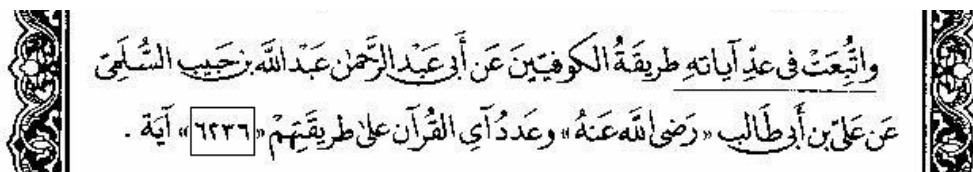 واتُّبِعَتْ فى عدِّ آياتهِ طريقَةُ الكوفيّينَ عَن أَبى عَبْدِ الرَّحمٰن عَبْدِ اللَّه بن حَبِيب السُّلَمِىّ
عَن عَلىّ بن أَبى طَالِب «رَضى اللَّه عَنهُ» وعَددُ آىِ القُرآن علىٰ طريقَتِهِمْ «٦٢٣٦» آيَة .